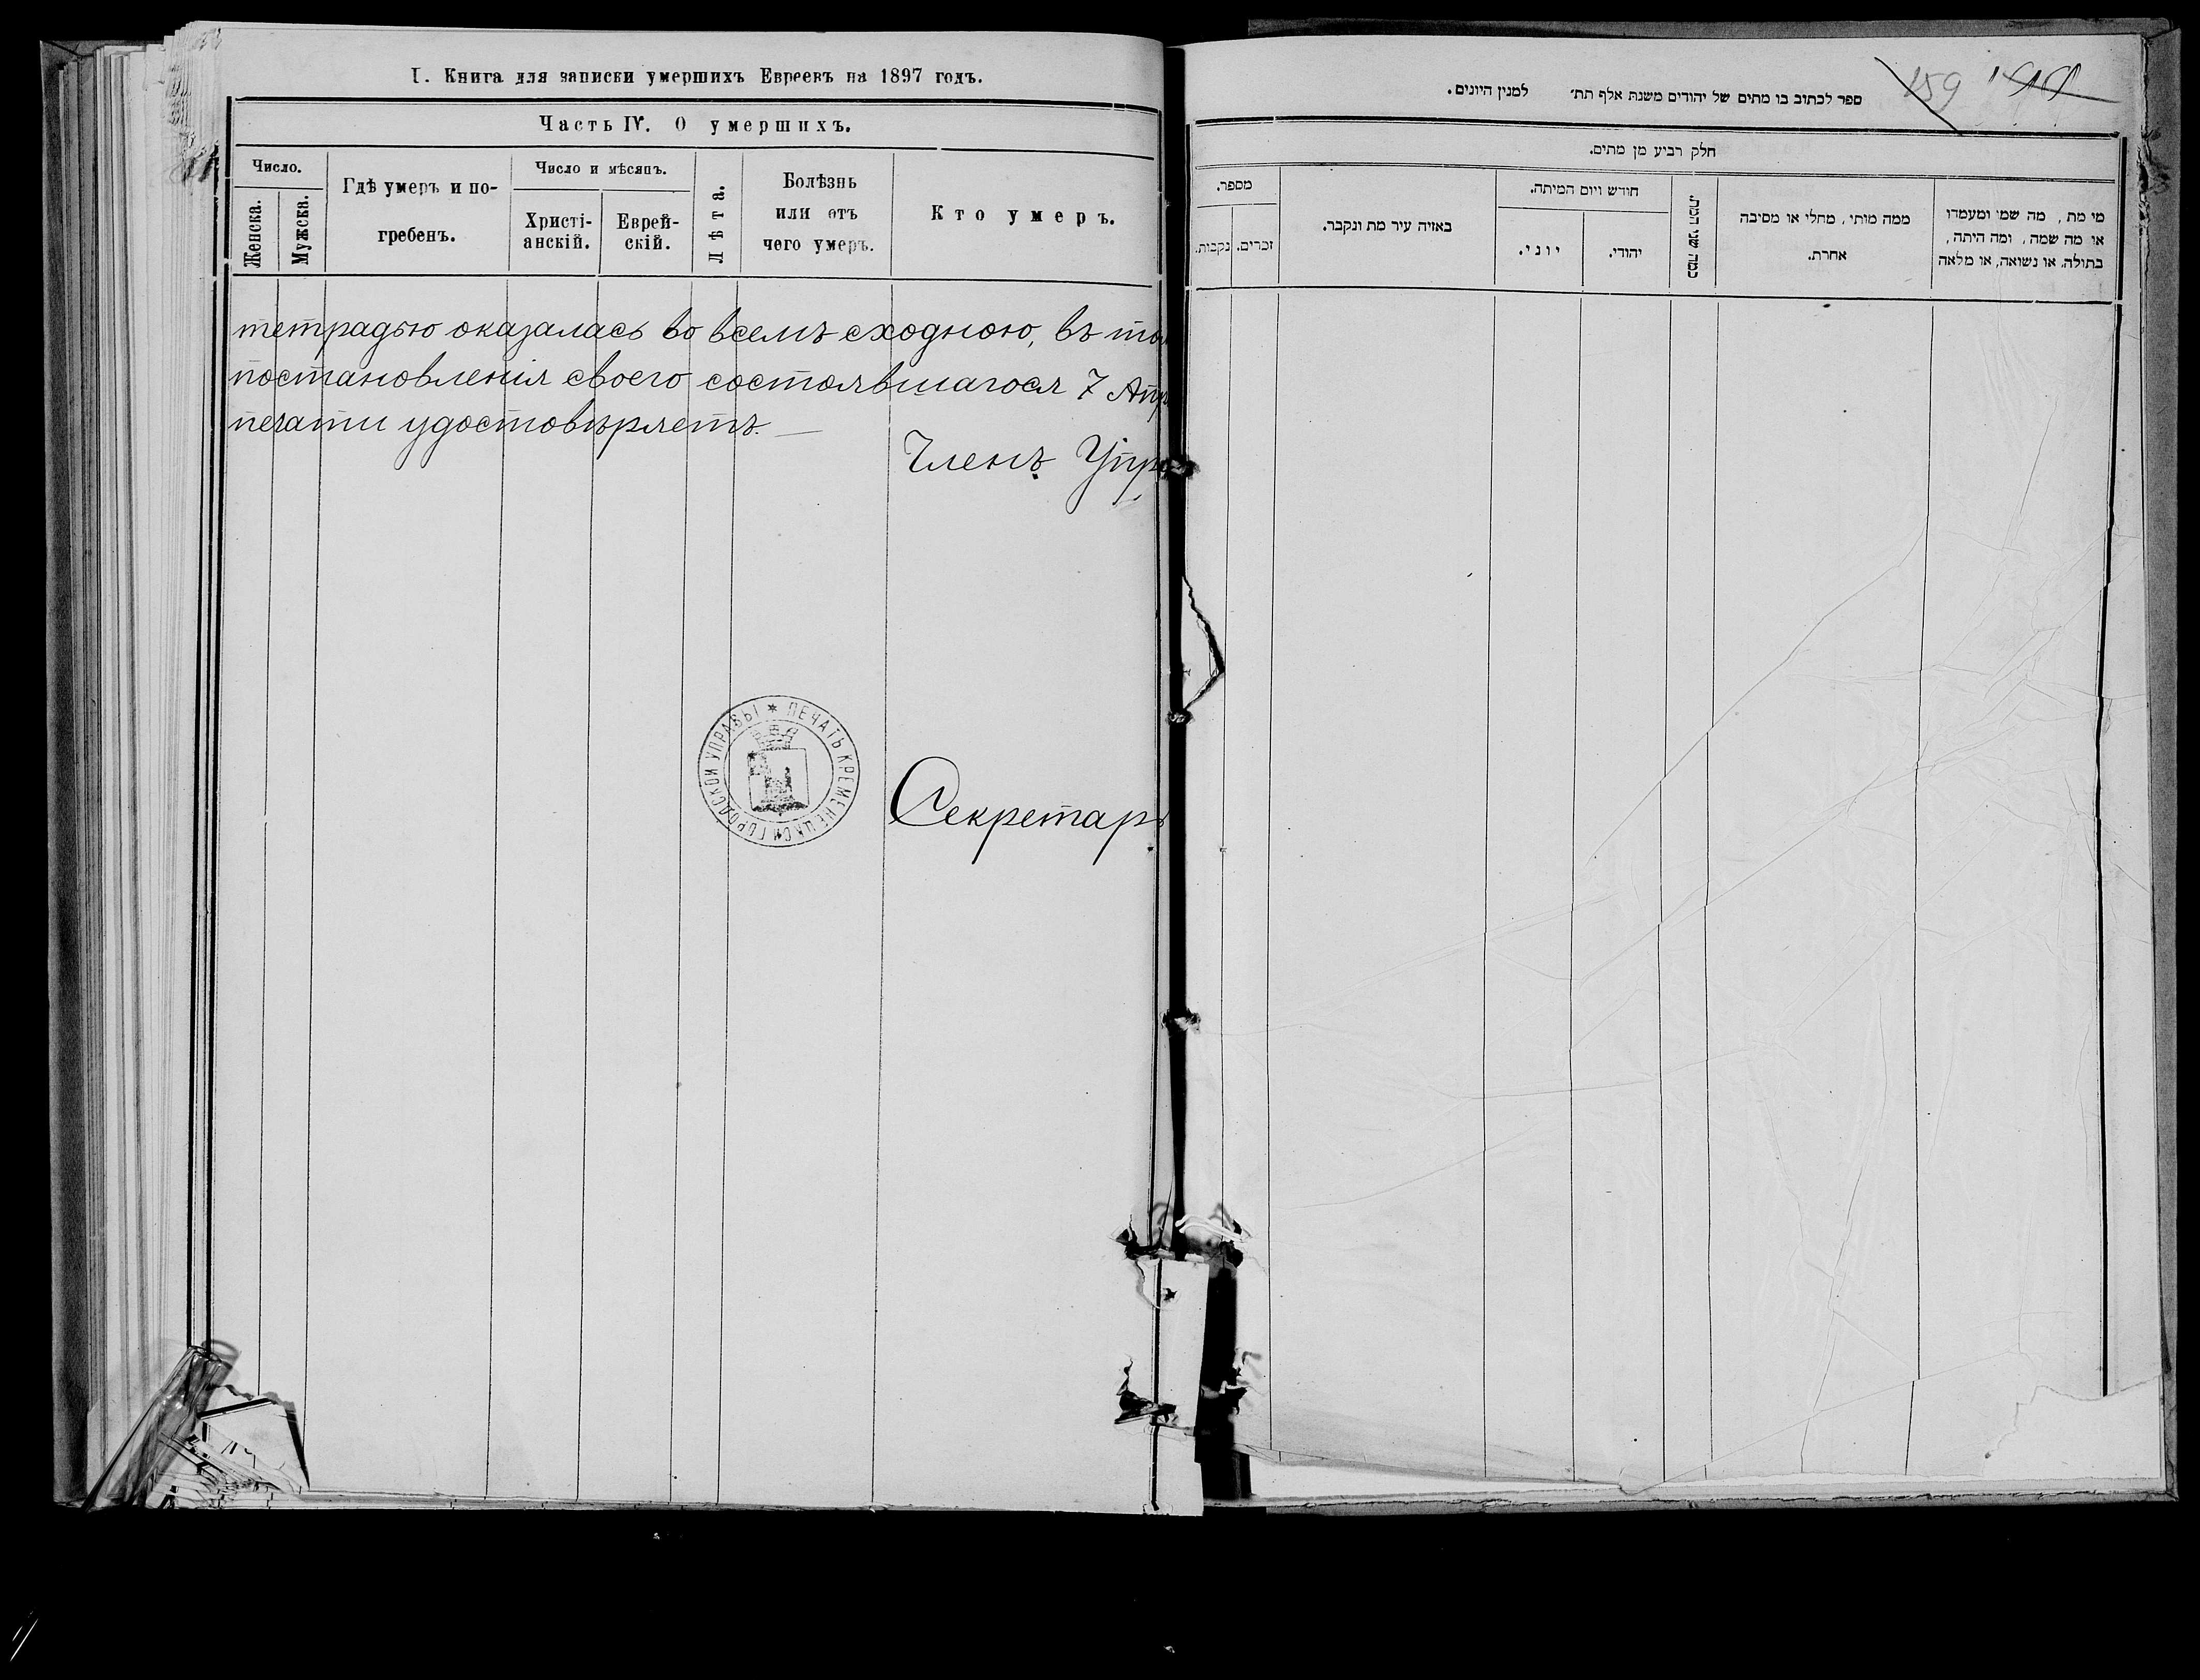 I. Книга для записки умершихъ Евреевъ на 1897 годъ.
Часть IV. О умершихъ.
Число.
Женска.
Мужска.
Гдѣ умеръ и по-
гребенъ.
Число и мѣсяцъ.
Христі-
анскій.
Еврей-
скій.
Лѣта.
Болѣзнь
или отъ
чего умеръ.
Кто умеръ.
тетрадью оказалась во всемъ сходною, въ
постановленія своего состоявшагося 7
печати удостовѣряетъ.
Членъ
ПЕЧАТЬ КРЕМЕНЕЦКОЙ ГОРОДСКОЙ УПРАВЫ
Секретарь
159
ספר לכתוב בו מתים של יהודים משנת אלף תת׳ למנין היונים.
חלק רביע מן מתים.
מספר.
נקבות.
זכרים.
באזיה עיר מת ונקבר.
חודש ויום המיתה.
יוני.
יהודי.
ממה מותי, מחלי או מסיבה
אחרת.
מי מת, מה שמו ומעמדו
או מה שמה, ומה היתה,
בתולה, או נשואה, או מלאה